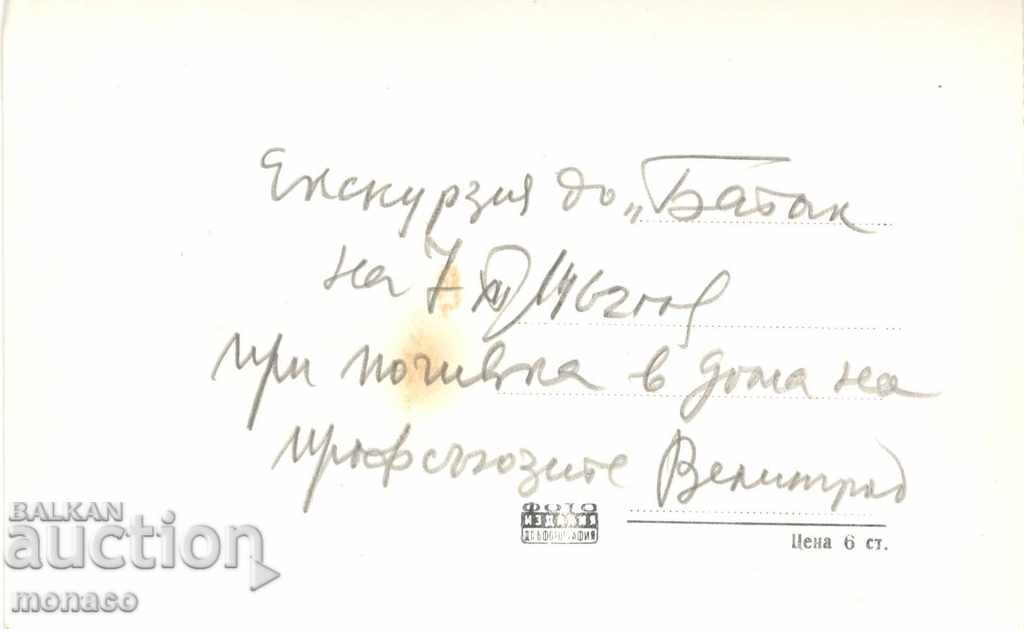 Екскурзия до „Батак
на 7 XII 1962 год
при почивка в дома на
профсъюзите Велинград
ФОТО
ИЗДАНИЯ
ДП БЪЛГ. ФОТОГРАФИЯ
Цена 6 ст.
BALKAN
auction
monaco